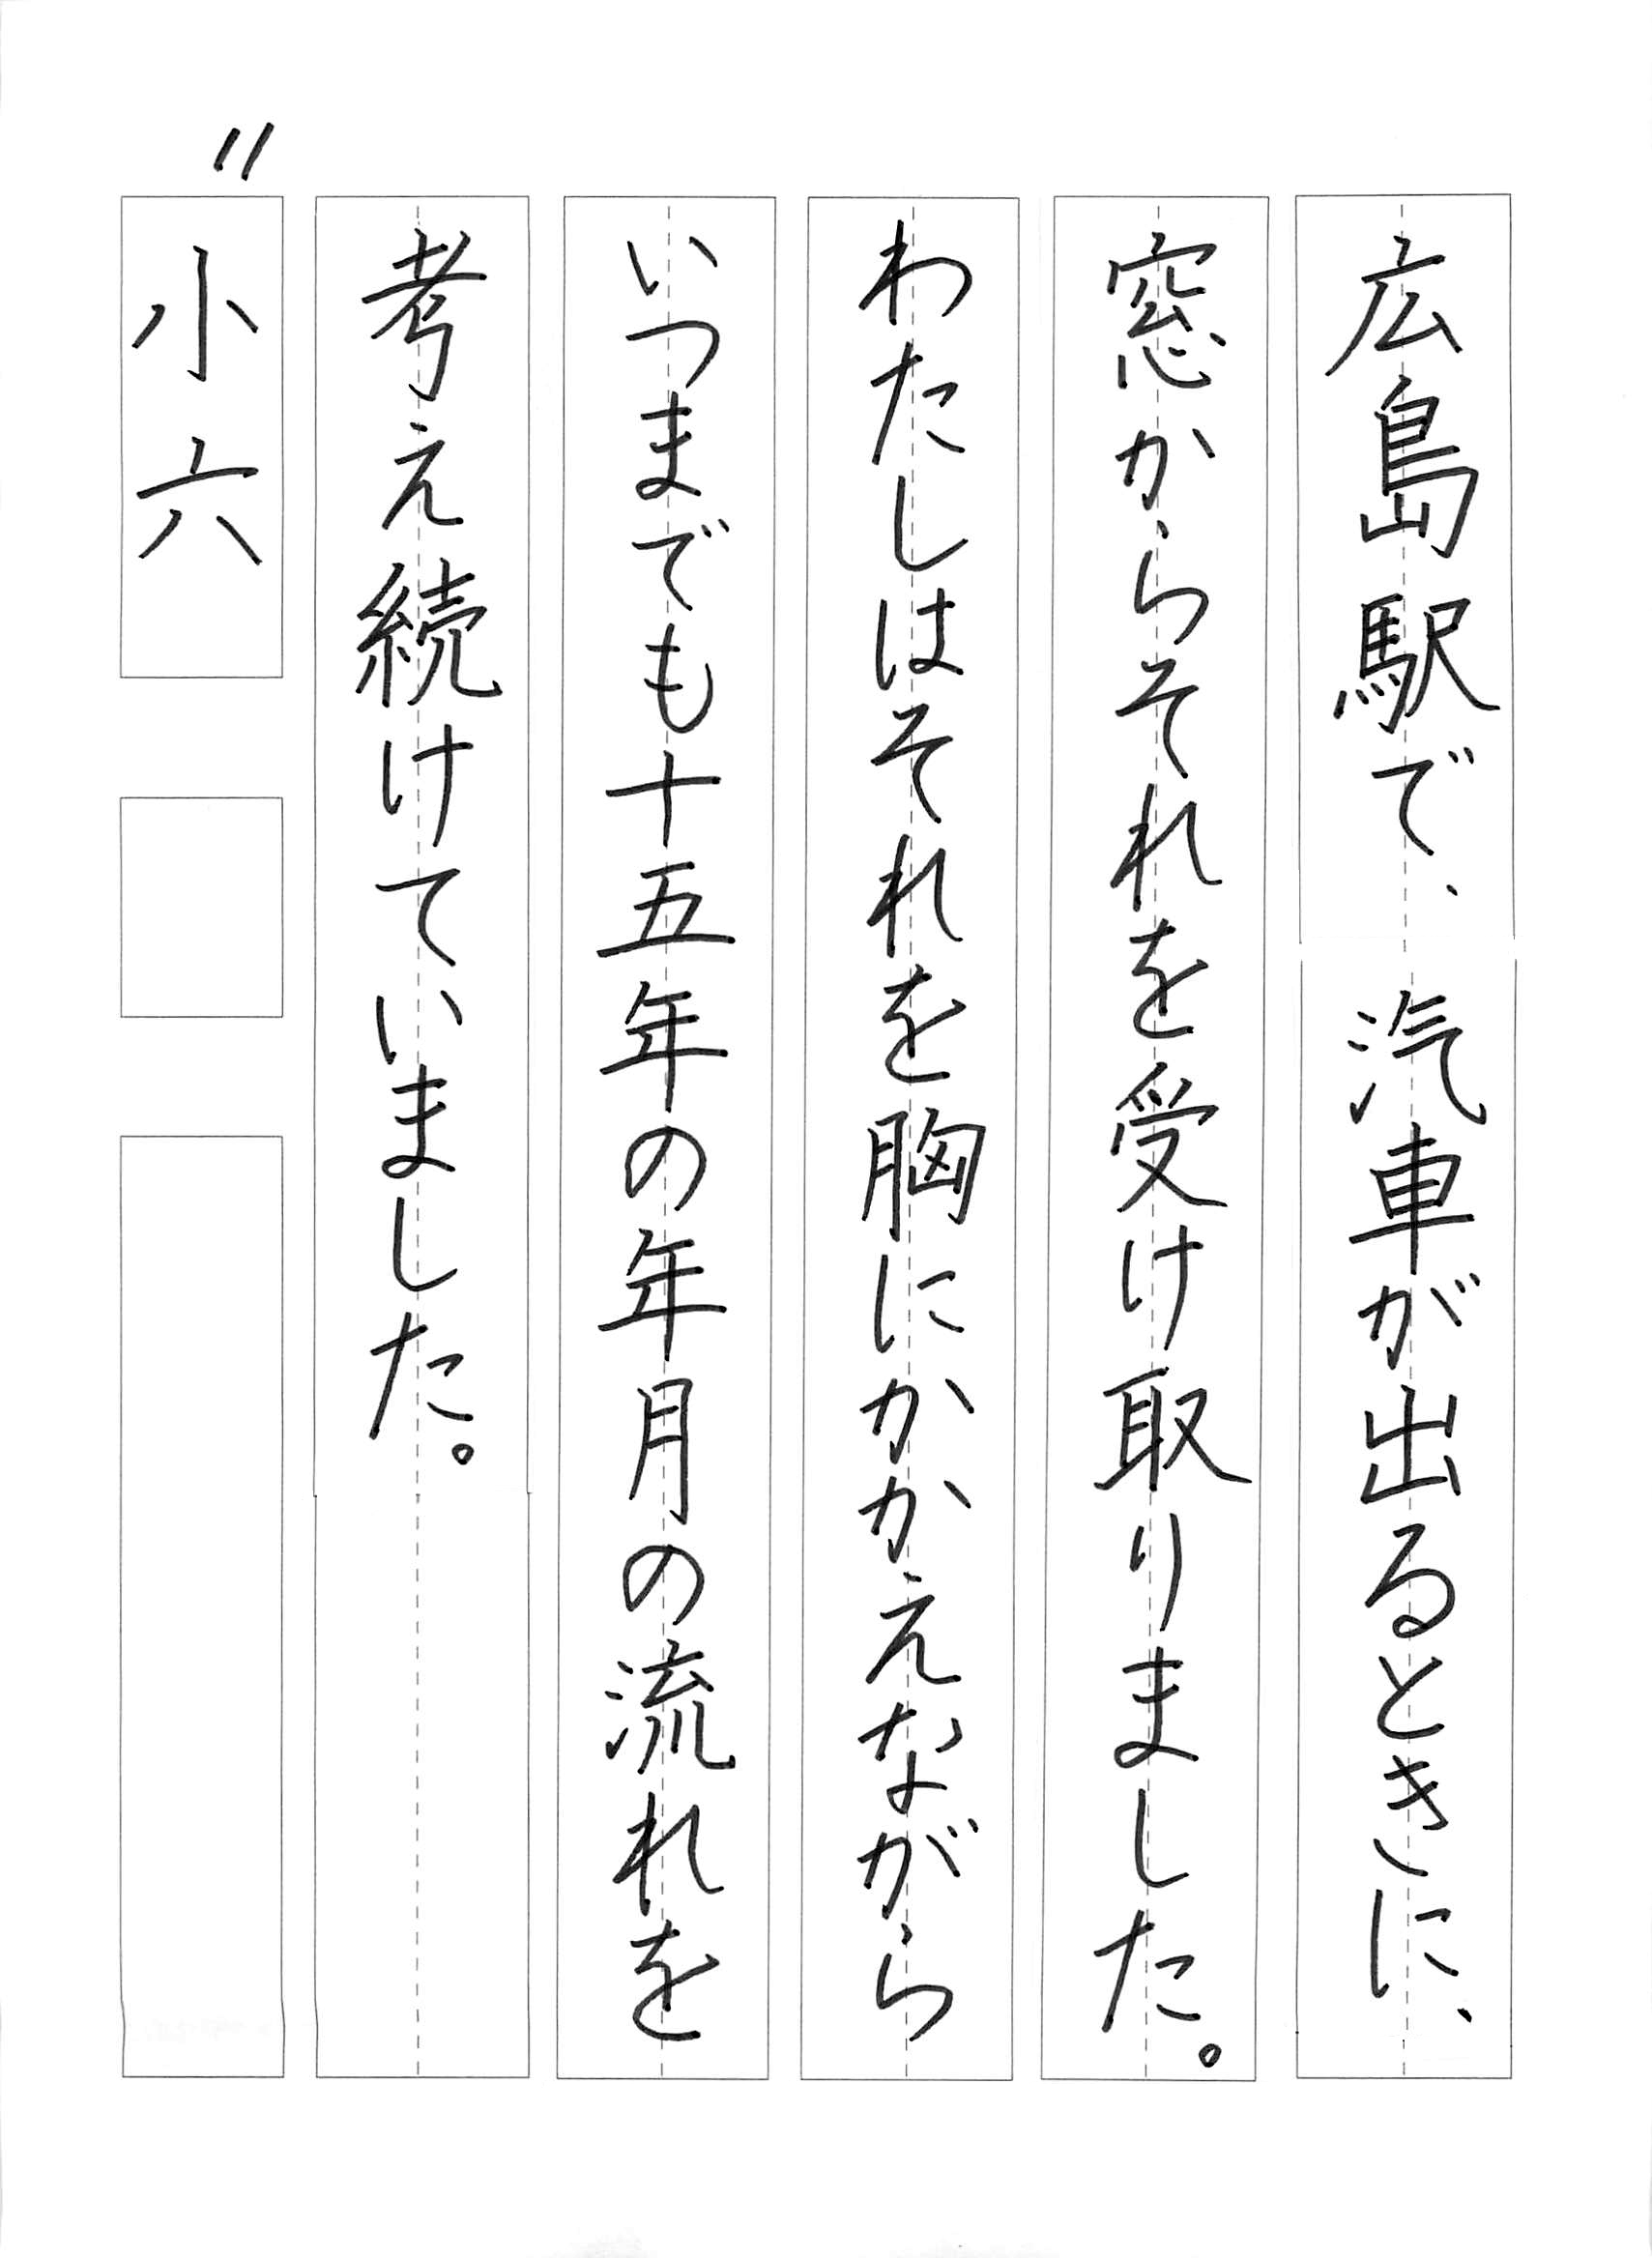 広島駅で、汽車が出るときに、
窓からそれを受け取りました。
わたしはそれを胸にかかえながら
いつまでも十五年の年月の流れを
考え続けていました。
〃
小六